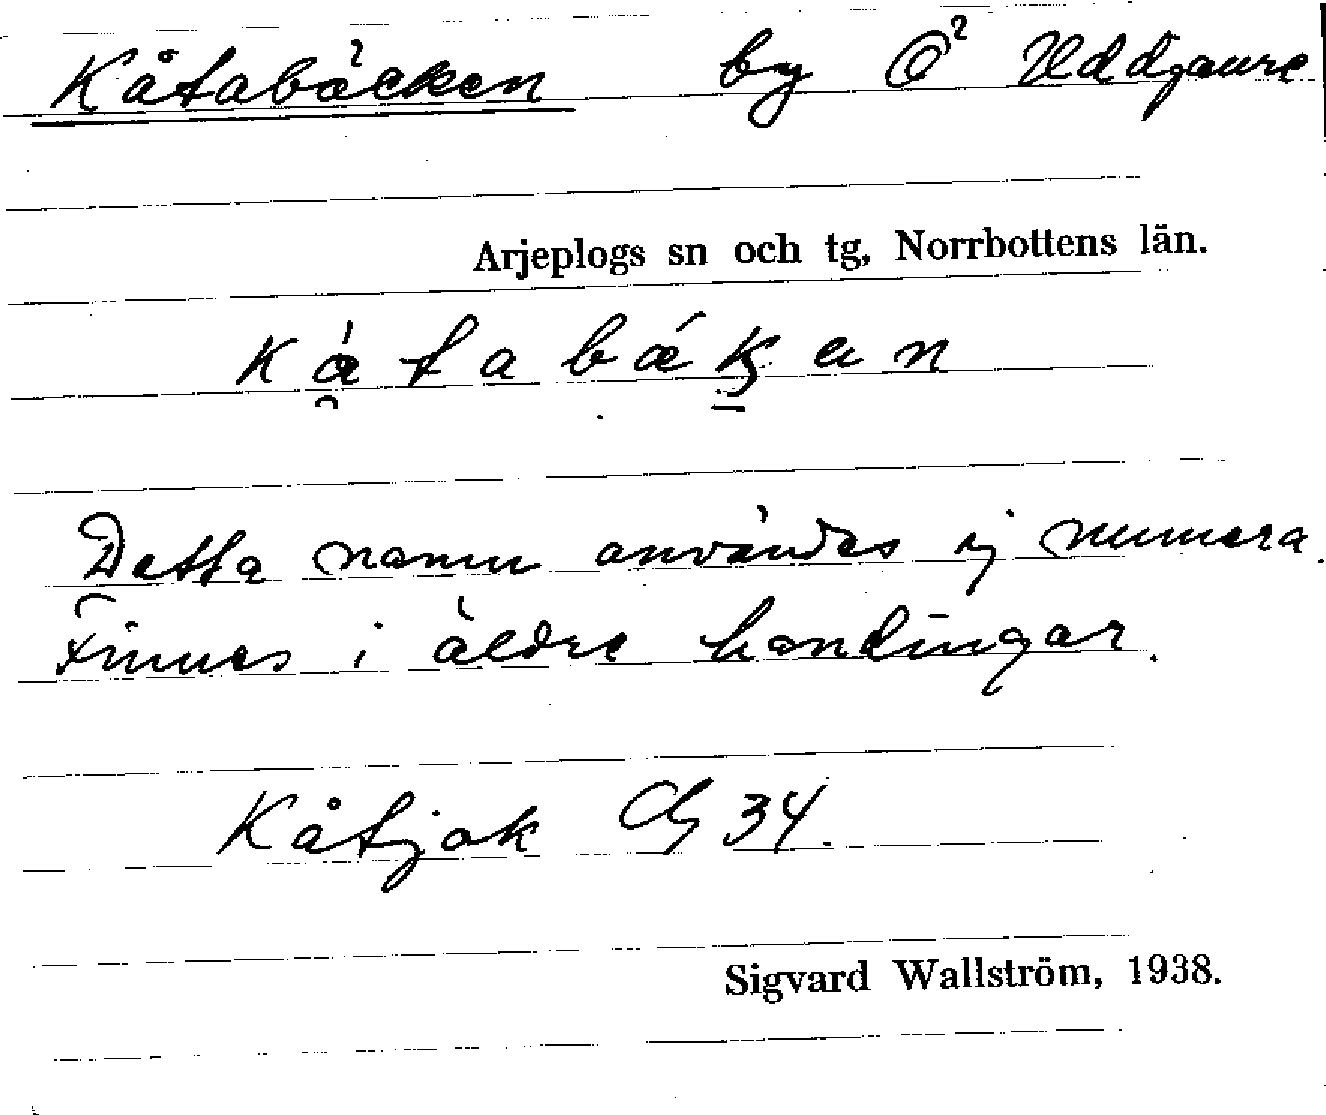 Kåtabäcken by Ö² Uddjaure
Arjeplogs sn och tg, Norrbottens län.
Detta namn användes ej numera.
Finnes i äldre handlingar.
Kåtjak 34.
Sigvard Wallström, 1938.